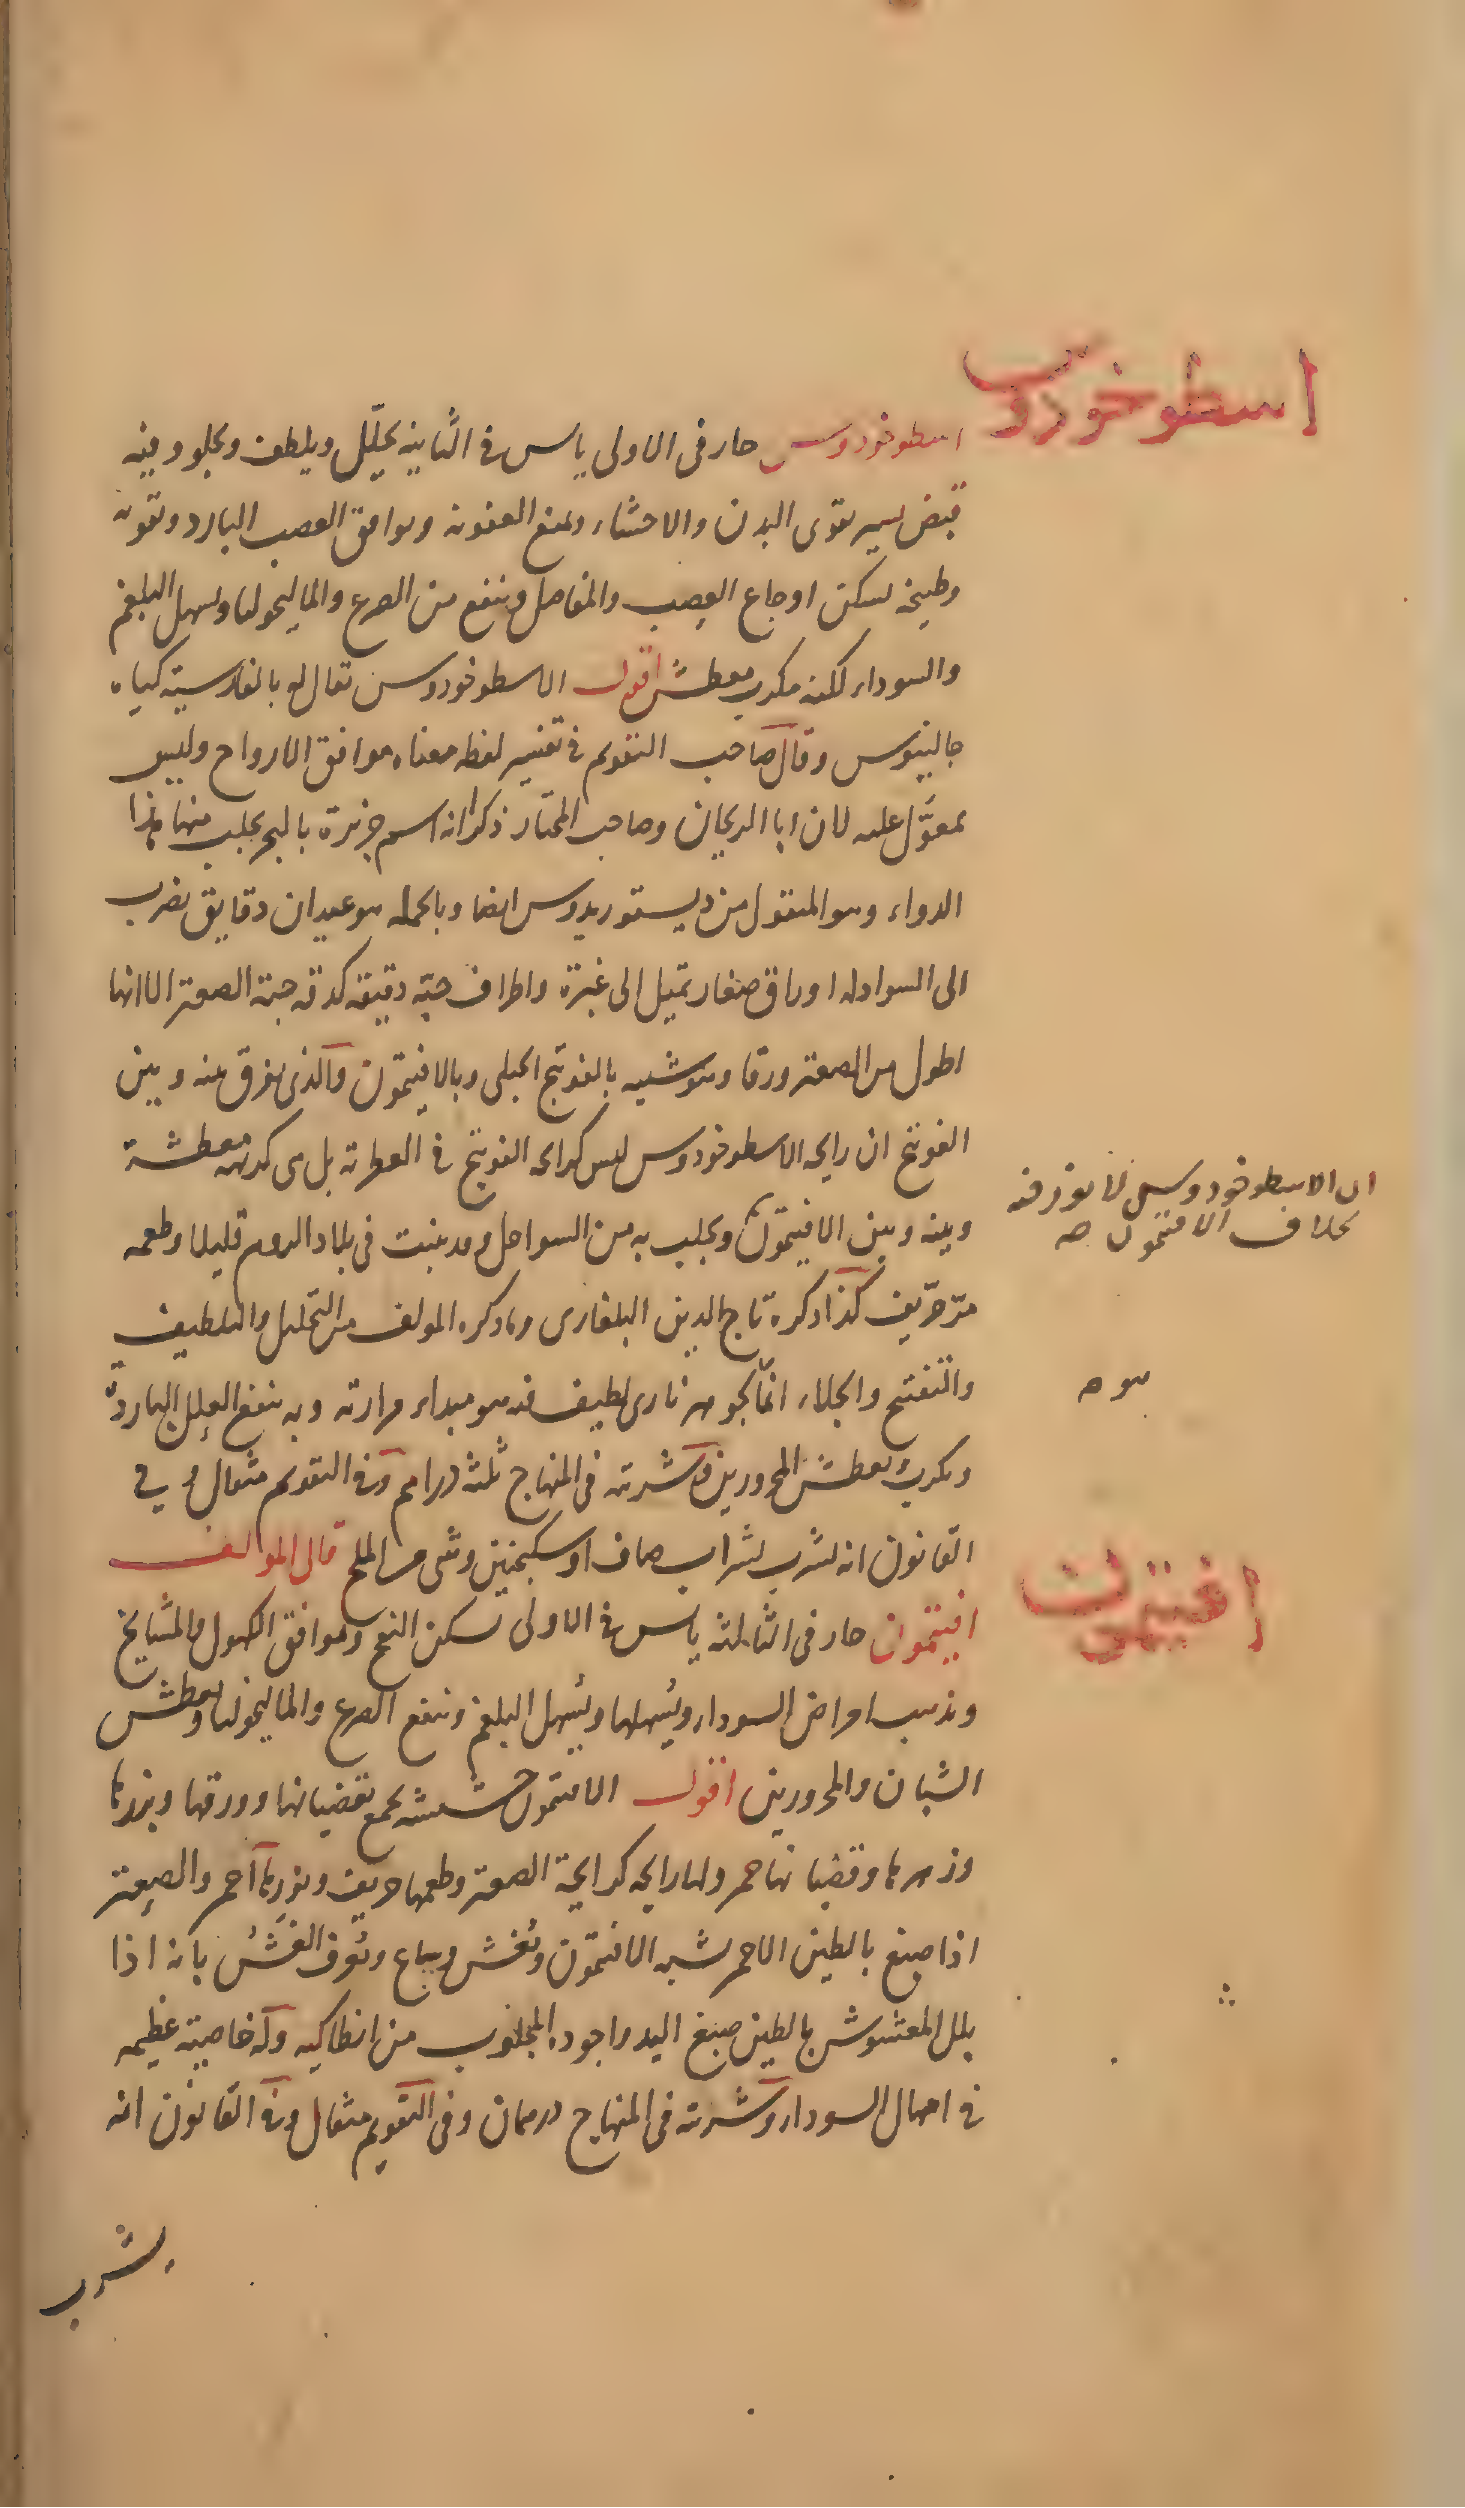 اسطوخودوس
اسطوخودوس حار فى الاولى يابس فى الثانية يحلّل ويلطف ويجلو وفيه
قبض يسير يقوى البدن والاحشاء ويمنع العفونة ويوافق العصب البارد ويقويه
وطبيخه يسكن اوجاع العصب والمفاصل وينفع من الصرع والماليخوليا ويسهل البلغم
والسوداء لكنه مكرب معطش اقول الاسطوخودوس يقال له بالفارسية كياه
جالينوس وقال صاحب التقويم فى تفسير لفظه معناه موافق الارواح وليس
بمعوَّل عليه لان ابا الريحان وصاحب المختار ذكرا انه اسم جزيرة بالبحر يجلب منها هذا
الدواء وهو المنقول من ديستوريدوس ايضا وبالجملة هو عيدان دقايق يضرب
الى السواد له اوراق صغار تميل الى غبرة واطراف حبّه دقيقة كدقة حبة الصعتر الا انها
اطول من الصعتر ورقا وهو شبيه بالفوتنج الجبلى وبالافيتمون والذى يفرق بينه وبين
الفوتنج ان رايحة الاسطوخودوس ليس كرايحة الفوتنج فى العطرية بل هى كريهة معطشة
وبينه وبين الافيتمون ويجلب به من السواحل وقد ينبت فى بلاد الروم قليلا وطعمه
ان الاسطوخودوس لا بزر فيه
بخلاف الافتيمون صح
مرّ حرّيف كذا ذكره تاج الدين البلغارى وما ذكره المولف من التحليل والتلطيف
والتفتيح والجلاء انّما بجوهر نارى لطيف فيه هو مبداء مرارته وبه ينفع العلل الباردة
هو صح
ويكرب ويعطش المحرورين وشربته فى المنهاج ثلثة دراهم وفى التقويم مثقال وفى
القانون انه يشرب بشراب صاف او سكنجبين وشى من الملح قال المولف
افيتمون
افيتمون حار فى الثالثة يابس فى الاولى يسكن النفخ وموافق الكهول والمشايخ
ويذهب امراض السوداء ويُسهلها ويُسهل البلغم وينفع الصرع والماليخوليا ويعطش
الشبان والمحرورين اقول الافتيمون حشيشه يجمع بقضبانها وورقها وبزرها
وزهرها وقضبانها حمر ولها رايحة كرايحة الصعتر وطعمها حريف وبزرها احمر والصعتر
اذا صبغ بالطين الاحمر شبه الافتيمون ويُغش ويباع ويُعرف الغشُّ بانه اذا
بلل المغشوش بالطين صبغ اليد واجوده المجلوب من انطاكيه وله خاصية عظيمة
فى اسهال السوداء وشربته فى المنهاج درهمان وفى التقويم مثقال وفى القانون انه
يشرب